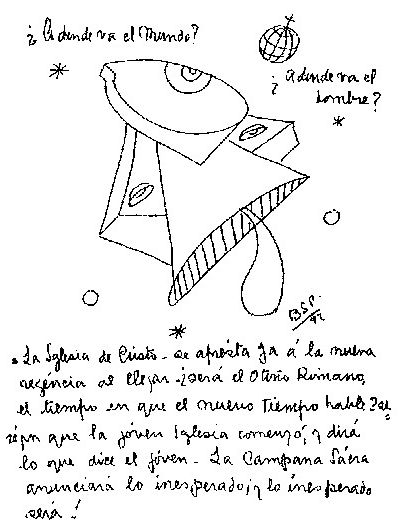 ¿A donde va el Mundo?
¿A donde va el
hombre?
BSP.
42
La Iglesia de Cristo - se apresta ya á la nueva
regéncia al llegar - ¡será el Otoño Romano,
el tiempo en que el nuevo tiempo hable?
que la jóven Iglesia comenzó; y dirá
lo que dice el jóven - La Campana Sacra
anunciará lo inesperado; y lo inesperado
será!